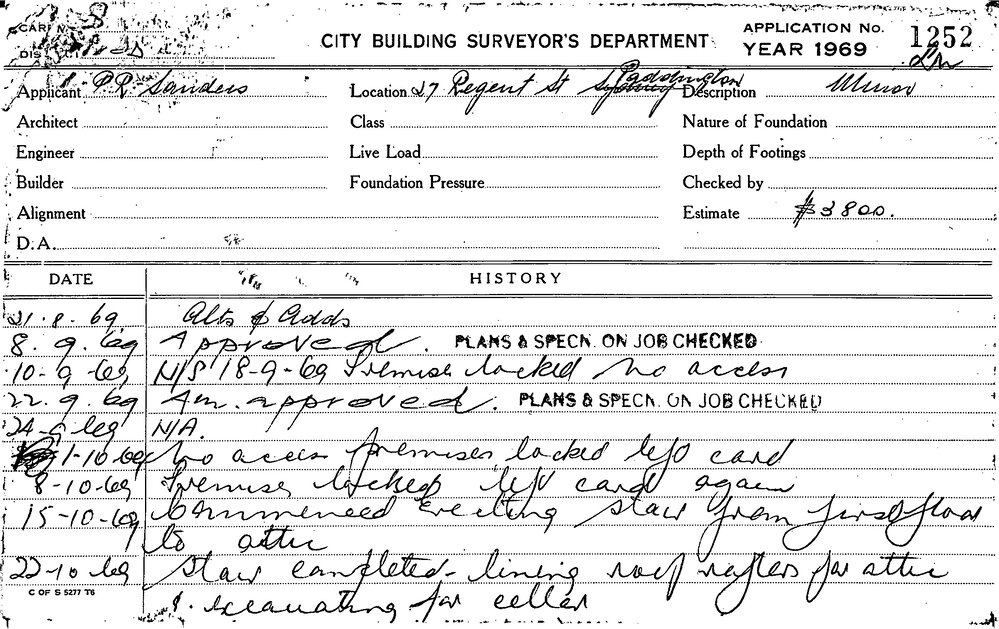 CARD N
DIS
CITY BUILDING SURVEYOR'S DEPARTMENT
APPLICATION No. 1252
YEAR 1969
Applicant P.R. Sanders
Location 27 Regent St Sydney Paddington
Description Minor
Architect
Class
Nature of Foundation
Engineer
Live Load
Depth of Footings
Builder
Foundation Pressure
Checked by
Alignment
Estimate $3800.
D.A.
DATE HISTORY
21.8.69 Alts & Adds
8.9.69 Approved. PLANS & SPECN. ON JOB CHECKED
10-9-69 N/S 18-9-69 Premises locked no access
22.9.69 Am. approved. PLANS & SPECN. ON JOB CHECKED
24-9-69 N/A.
1-10-69 No access premises locked left card
8-10-69 Premises locked left card again
15-10-69 Commenced erecting stair from first floor
to attic
22-10-69 Stair completed - lining roof rafters for attic
& excavating for cellar
C OF S 5277 T6